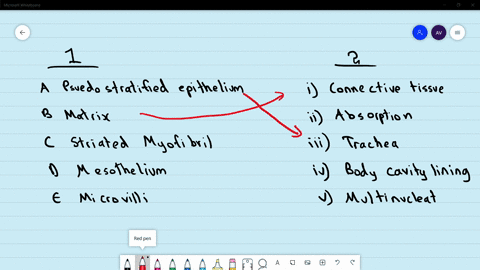 Microsoft Whiteboard
AV
1
2
A Psuedostratified epithelium
i) Connective tissue
B Matrix
ii) Absorption
C Striated Myofibril
iii) Trachea
D Mesothelium
iv) Body cavity lining
E Microvilli
v) Multinucleat
Red pen